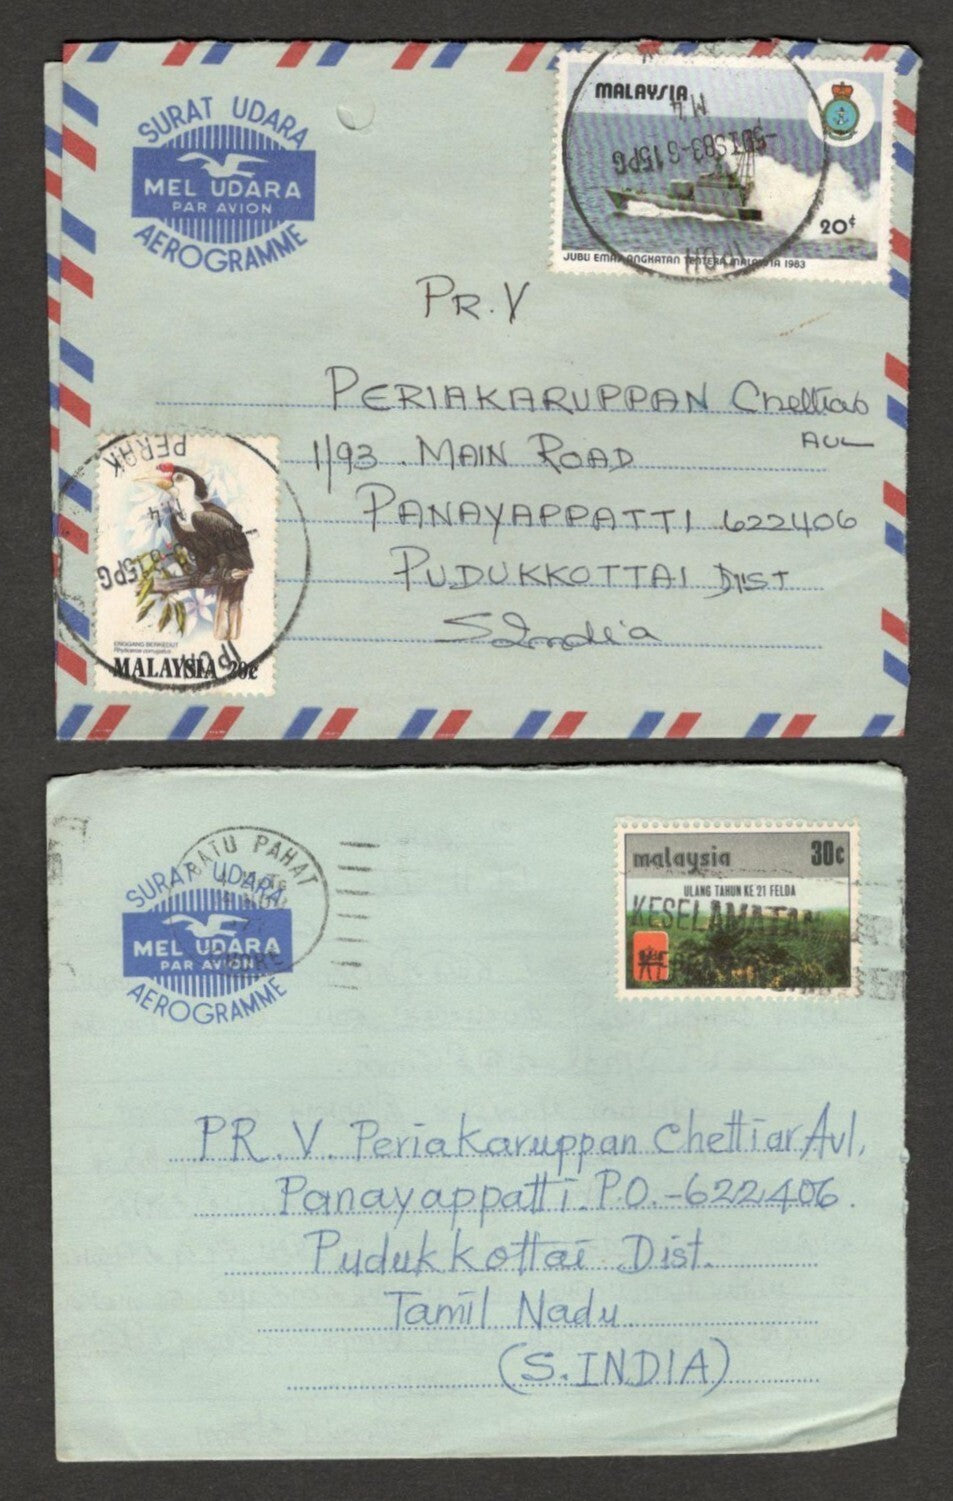 SURAT UDARA
MEL UDARA
PAR AVION
AEROGRAMME
MALAYSIA
M.4
-5OTS83-6 15PG
IPOH
20¢
JUBLI EMAS ANGKATAN TENTERA MALAYSIA 1983
PR.V
PERIAKARUPPAN Chettiar
AVL
1/93. MAIN ROAD
PANAYAPPATTI 622406
PUDUKKOTTAI DIST
S.India
PERAK
M.4
15PG
IPOH
ENGGANG BERKEDUT
Rhyticeros corrugatus
MALAYSIA 20¢
BATU PAHAT
JOHORE
SURAT UDARA
MEL UDARA
PAR AVION
AEROGRAMME
malaysia 30c
ULANG TAHUN KE 21 FELDA
KESELAMATAN
PR. V. Periakaruppan Chettiar, Avl,
Panayappatti. P.O.-622406.
Pudukkottai Dist.
Tamil Nadu.
(S.INDIA)